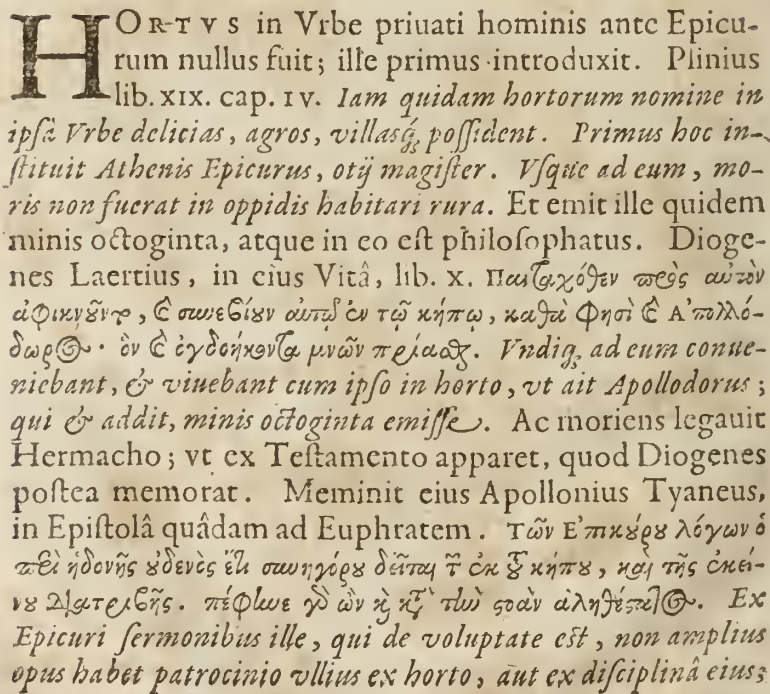 HORTVS in Vrbe priuati hominis ante Epicu-
rum nullus fuit; ille primus introduxit. Plinius
lib. XIX. cap. IV. Iam quidam hortorum nomine in
ipſâ Vrbe delicias, agros, villasq; poſſident. Primus hoc in-
ſtituit Athenis Epicurus, otij magiſter. Vſque ad eum, mo-
ris non fuerat in oppidis habitari rura. Et emit ille quidem
minis octoginta, atque in eo eſt philoſophatus. Dioge-
nes Laertius, in eius Vitâ, lib. X. Πανταχόθεν πρὸς αὐτὸν
ἀφικνοῦντο, καὶ συνεβίουν αὐτῷ ἐν τῷ κήπῳ, καθὰ φησὶ καὶ Ἀπολλό-
δωρος· ὃν καὶ ὀγδοήκοντα μνῶν πρίασθαι. Vndiq; ad eum conue-
niebant, & viuebant cum ipſo in horto, vt ait Apollodorus;
qui & addit, minis octoginta emiſſe. Ac moriens legauit
Hermacho; vt ex Teſtamento apparet, quod Diogenes
poſtea memorat. Meminit eius Apollonius Tyaneus,
in Epiſtolâ quâdam ad Euphratem. Τῶν Ἐπικούρου λόγων ὁ
περὶ ἡδονῆς οὐδενὸς ἔτι συνηγόρου δεῖται τῶν ἐκ τοῦ κήπου, καὶ τῆς ἐκεί-
νου διατριβῆς. πέφηνε γὰρ ὢν καὶ κατὰ τὴν στοὰν ἀληθέστατος. Ex
Epicuri ſermonibus ille, qui de voluptate eſt, non amplius
opus habet patrocinio vllius ex horto, aut ex diſciplinâ eius;